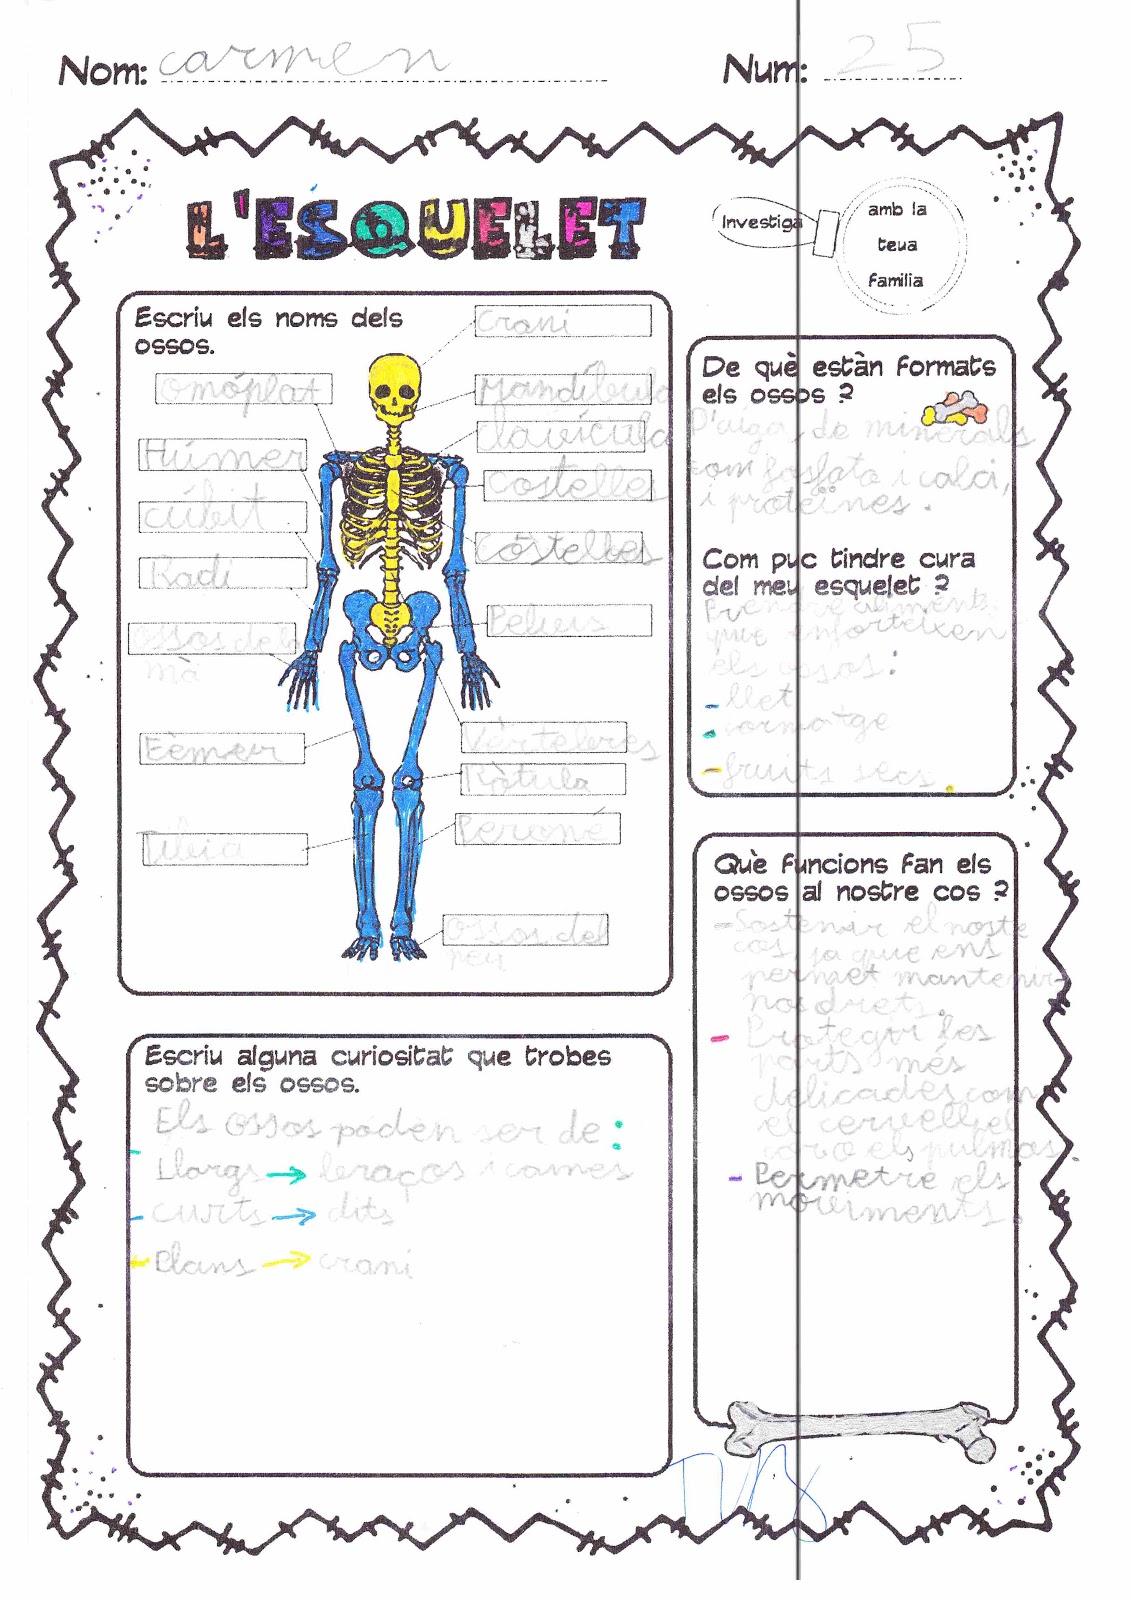 Nom: carmen
Num: 25
L'ESQUELET
Investiga
amb la
teua
Familia
Escriu els noms dels
ossos.
Crani
omóplat
Mandíbula
clavícula
Húmer
costelles
cúbit
costelles
Radi
Pelvis
ossos de la
mà
Fèmur
Vèrtebres
Ròtula
Peroné
Tíbia
ossos del
peu
De què estàn Formats
els ossos ?
D'aiga, de minerals
com fosfato i calci,
i proteïnes.
Com puc tindre cura
del meu esquelet ?
Prendre aliments
que enforteixen
els ossos:
- llet
- formatge
- fruits secs.
Què Funcions Fan els
ossos al nostre cos ?
- Sostenir el noste
cos, ja que ens
permet mantenir-
nos drets.
- Protegir les
parts més
delicades com
el cervell, el
cor o els pulmos
- Permetre els
moviments.
Escriu alguna curiositat que trobes
sobre els ossos.
Els ossos poden ser de :
- Llargs → braços i cames
- curts → dits
- Plans → crani